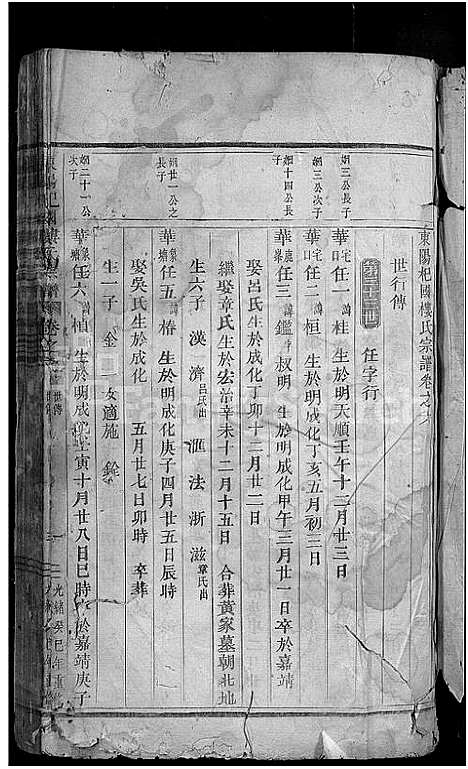 東陽杞國樓氏宗譜卷之六
世行傳
任字行
婣三公長子
華宅任一諱桂生於明天順壬午十二月廿三日
婣三公次子
華宅任二諱桓生於明成化丁亥五月初三日
婣十四公長子
華鹿任三諱鑑字叔明生於明成化甲午三月廿一日卒於嘉靖
娶呂氏生於成化丁卯十二月廿二日
繼娶章氏生於宏治辛未十二月十五日 合葬黃家墓朝北地
生六子 漢 濟呂氏出 滙 法 浙 滋章氏出
婣廿一公之長子
華象塘任五諱椿 生於明成化庚子四月廿五日辰時
娶吳氏生於成化 五月廿七日卯時 卒葬
生一子 金 一女適施 銓
婣二十一公次子
華象塘任六諱楨 生於明成化壬寅十月廿八日巳時卒於嘉靖庚子
光緒癸巳年重修